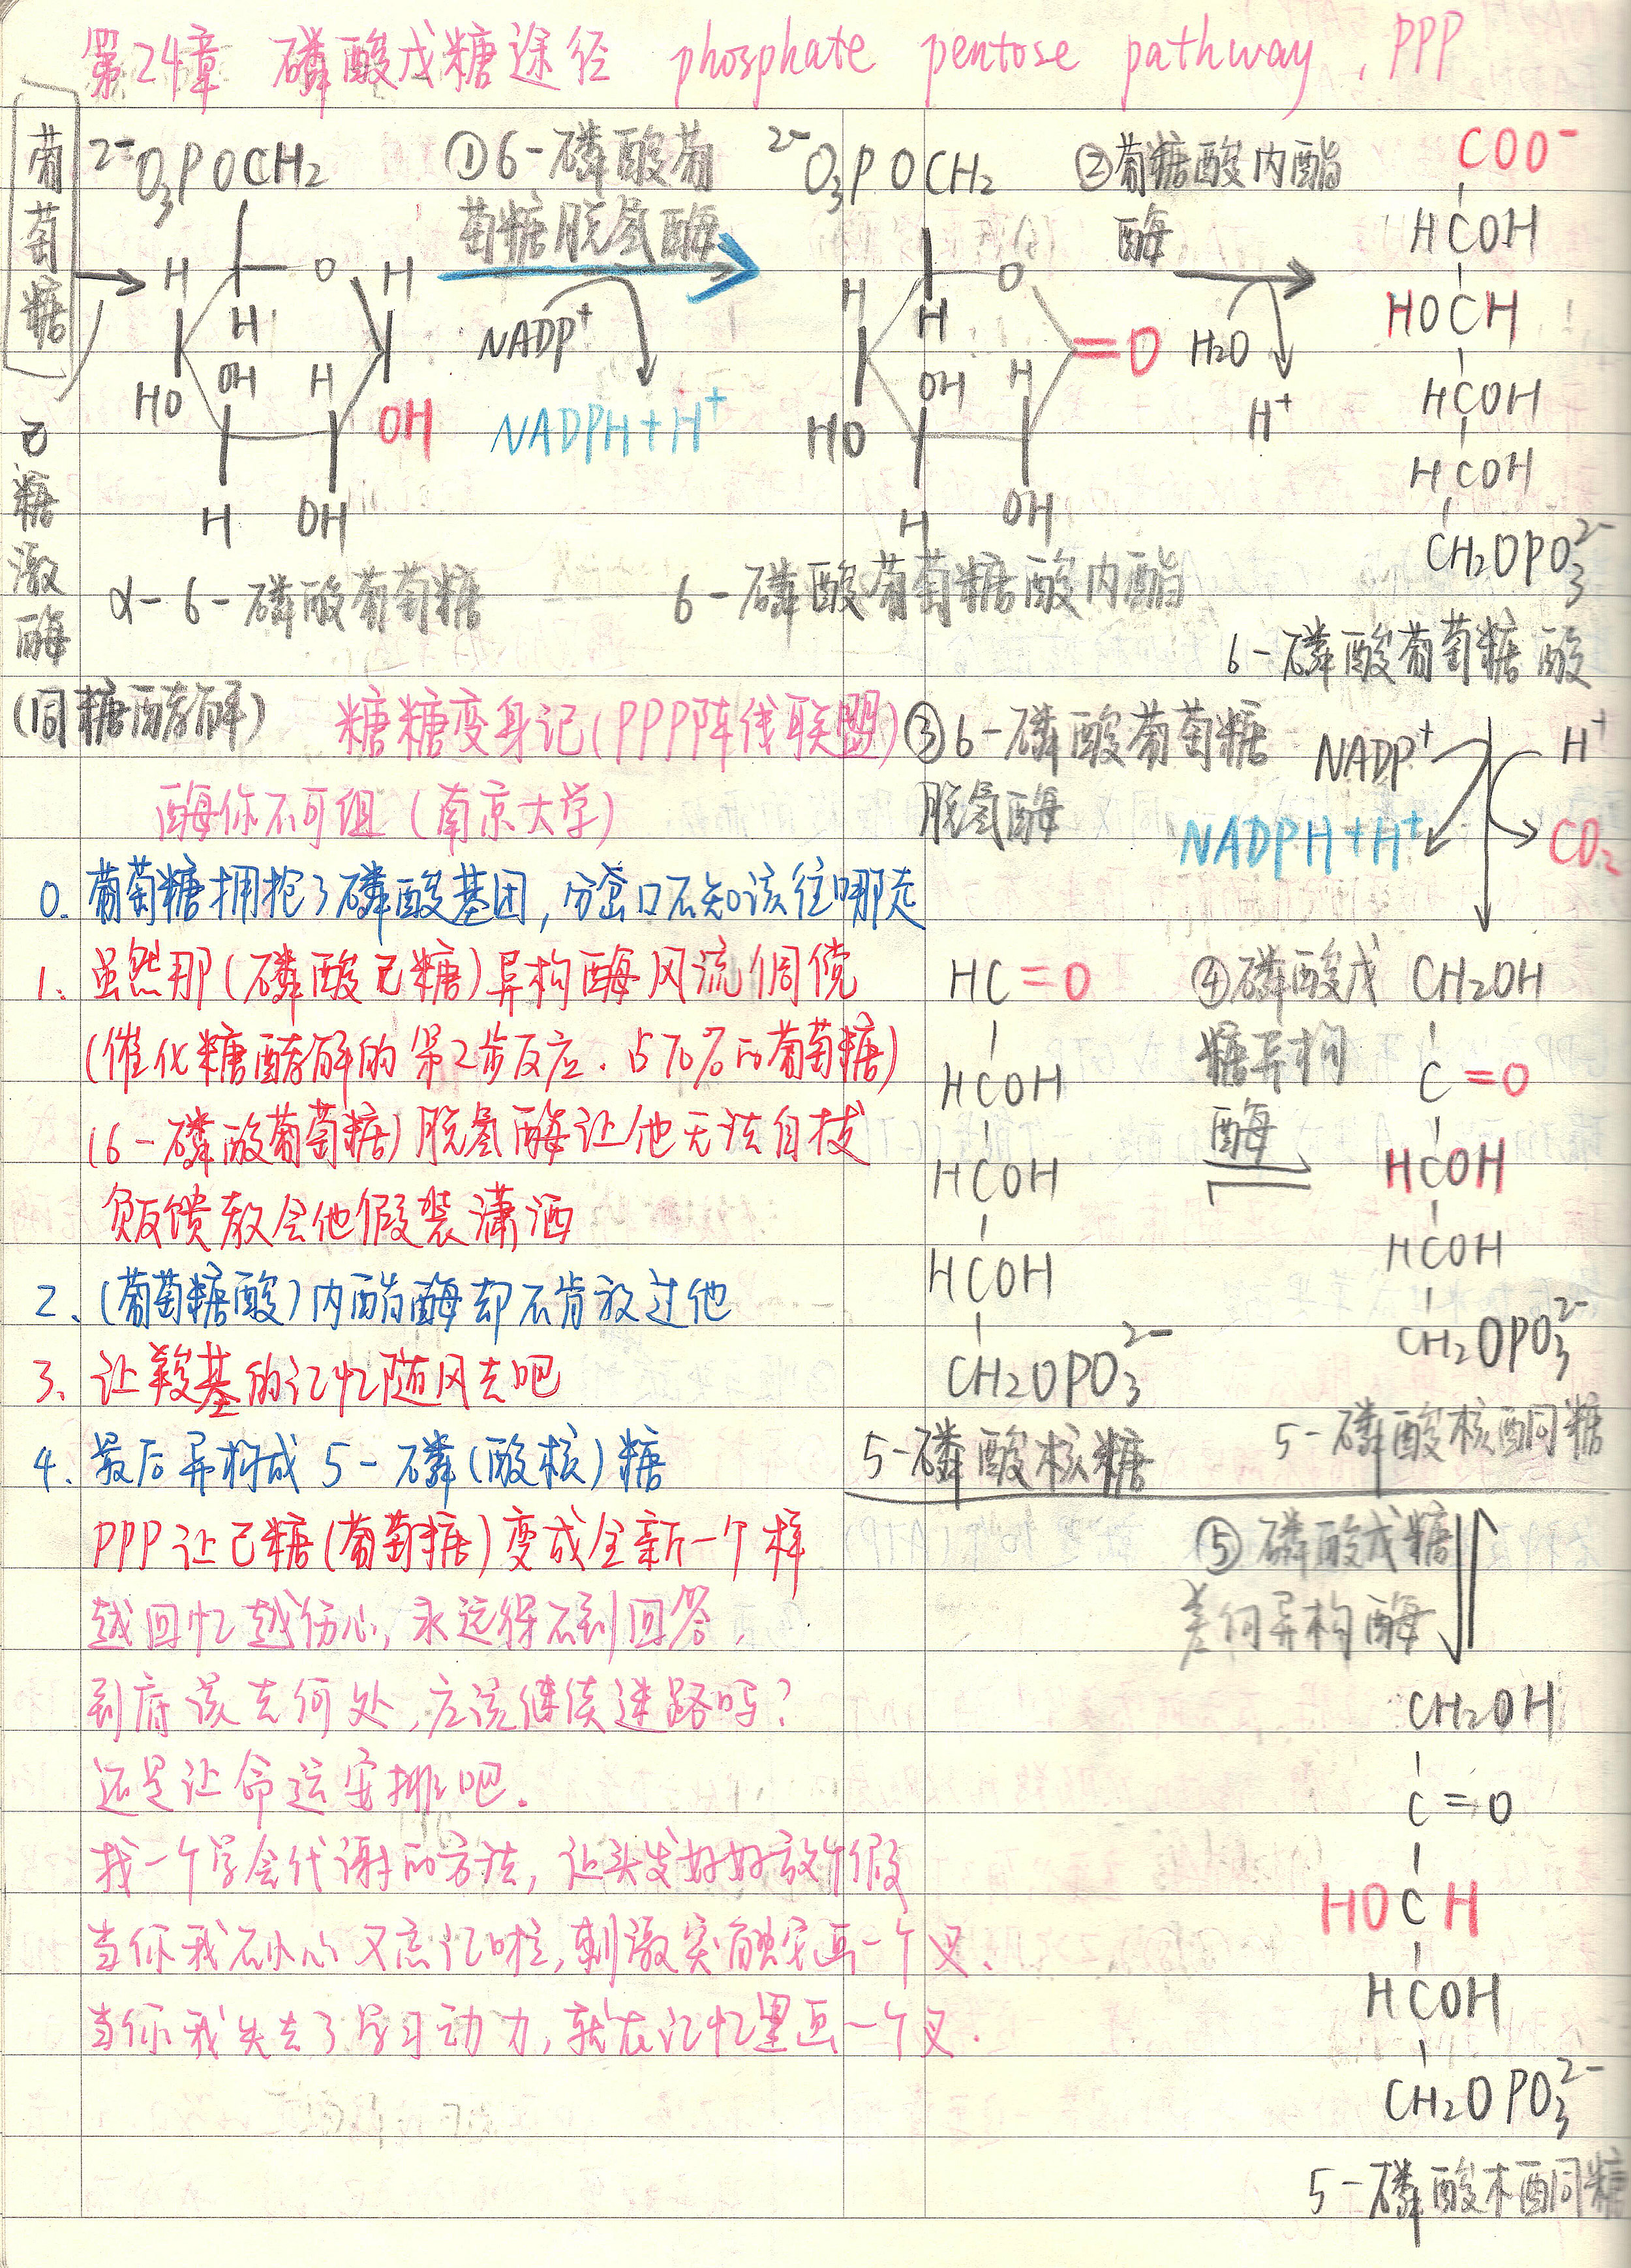 第24章 磷酸戊糖途径 phosphate pentose pathway, PPP
葡萄糖
己糖激酶
(同糖酵解)
²⁻O₃POCH₂
H O H
H
OH H
HO OH
H OH
α-6-磷酸葡萄糖
①6-磷酸葡
萄糖脱氢酶
NADP⁺
NADPH+H⁺
²⁻O₃POCH₂
H O
H
=O
OH H
HO
H OH
6-磷酸葡萄糖酸内酯
②葡糖酸内酯
酶
H₂O
H⁺
COO⁻
HCOH
HOCH
HCOH
HCOH
CH₂OPO₃²⁻
6-磷酸葡萄糖酸
③6-磷酸葡萄糖
脱氢酶
NADP⁺
H⁺
NADPH+H⁺
CO₂
CH₂OH
C=O
HCOH
HCOH
CH₂OPO₃²⁻
5-磷酸核酮糖
④磷酸戊
糖异构
酶
HC=O
HCOH
HCOH
HCOH
CH₂OPO₃²⁻
5-磷酸核糖
⑤磷酸戊糖
差向异构酶
CH₂OH
C=O
HOCH
HCOH
CH₂OPO₃²⁻
5-磷酸木酮糖
糖糖变身记(PPP阵线联盟)
酶你不可组(南京大学)
0. 葡萄糖拥抱了磷酸基团,分岔口不知该往哪走
1. 虽然那(磷酸己糖)异构酶风流倜傥
(催化糖酵解的第2步反应.占70%的葡萄糖)
(6-磷酸葡萄糖)脱氢酶让他无法自拔
负反馈教会他假装潇洒
2. (葡萄糖酸)内酯酶却不肯放过他
3. 让羧基的记忆随风去吧
4. 最后异构成5-磷(酸核)糖
PPP让己糖(葡萄糖)变成全新一个样
越回忆越伤心,永远得不到回答,
到底该去何处,应该继续迷路吗?
还是让命运安排吧.
找一个学会代谢的方法,让头发好好放个假
当你我不小心又忘记啦,刺激突触画一个叉.
当你我失去了学习动力,就在记忆里画一个叉.